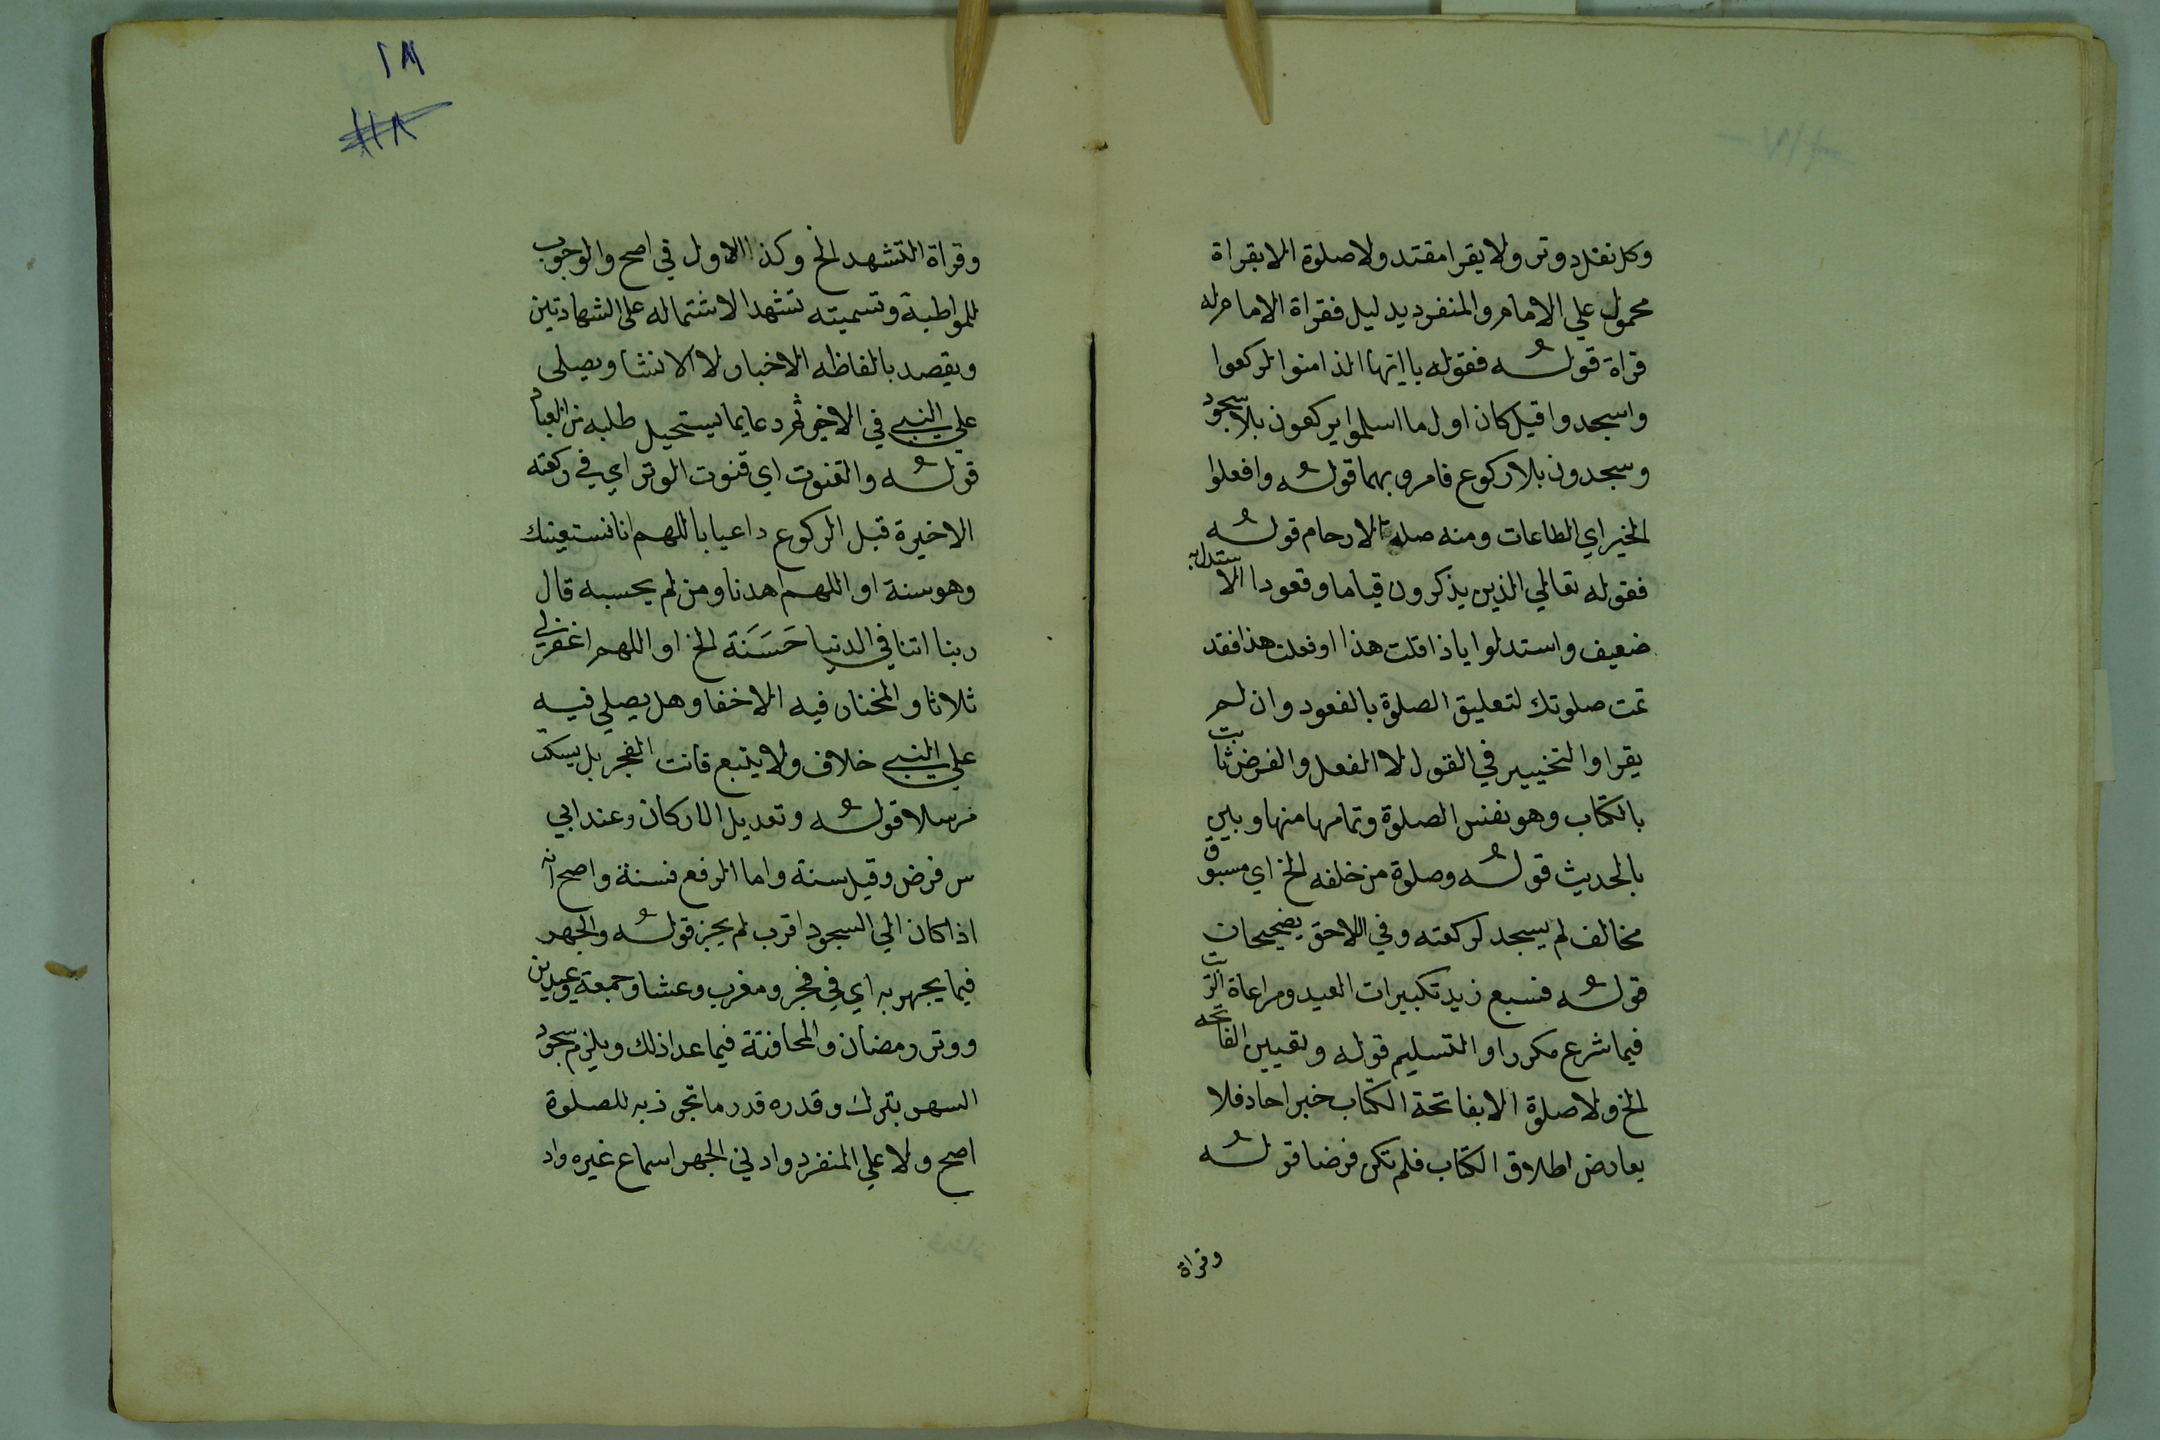 وكل نفل ووتر ولا يقرا مقتد ولا صلوة الا بقراة
محمول علي الامام والمنفرد بدليل فقراة الامام له
قراة قوله فقوله ياايها الذ امنوا اركعوا
واسجدوا قيل كان اول ما اسلموا يركعون بلا سجود
وسجدون بلا ركوع فامرو بهما قوله وافعلوا
الخير اي الطاعات ومنه صلة الارحام قوله
فقوله تعالي الذين يذكرون قياما وقعودا الاستدلا به
ضعيف واستدلوا باذا قلت هذا او فعلت هذا فقد
تمت صلوتك لتعليق الصلوة بالقعود وان لم
يقرا والتخيير في القول لا الفعل والفرض ثابت
بالكتاب وهو نفس الصلوة وتمامها منها وبين
بالحديث قوله وصلوة من خلفه الخ اي مسبوق
مخالف لم يسجد لركعته وفي اللاحق يضحيحات
قوله فسبع زيد تكبيرات العيد ومراعاة الترتيب
فيما شرع مكررا والتسليم قوله وتعيين الفاتحه
الخ ولا صلوة الا بفاتحة الكتاب خبر احاد فلا
يعارض اطلاق الكتاب فلم تكن فرضا قوله
وقراة
١٨
١١٨
وقراة التشهد الخ وكذا الاول في اصح والوجوب
للمواظبة وتسميته تشهدا لاشتماله علي الشهادتين
ويقصد بالفاظه الاخبار لا الانشا ويصلي
علي النبي في الاخير ثم دعا بما يستحيل طلبه من العباد
قوله والقنوت اي قنوت الوتر اي في ركعته
الاخيرة قبل الركوع داعيا باللهم انا نستعينك
وهو سنة او اللهم اهدنا ومن لم يحسبه قال
ربنا اتنا في الدنيا حَسَنَة الخ او اللهم اغفرلي
ثلاثا والمختار فيه الاخفا وهل يصلي فيه
علي النبي خلاف ولا يتبع قانت الفجر بل يسكت
مرسلا قوله وتعديل الاركان وعند ابي
س فرض وقيل سنة واما الرفع فسنة واصح انه
اذا كان الي السجود اقرب لم يجز قوله والجهر
فيما يجهر به اي في فجر ومغرب وعشا وجمعة وعيدين
ووتر رمضان والمخافتة فيما عدا ذلك ويلزم سجود
السهو بترك وقدره قدر ما تجوز به للصلوة
اصح ولا علي المنفرد وادني الجهر اسماع غيره واد